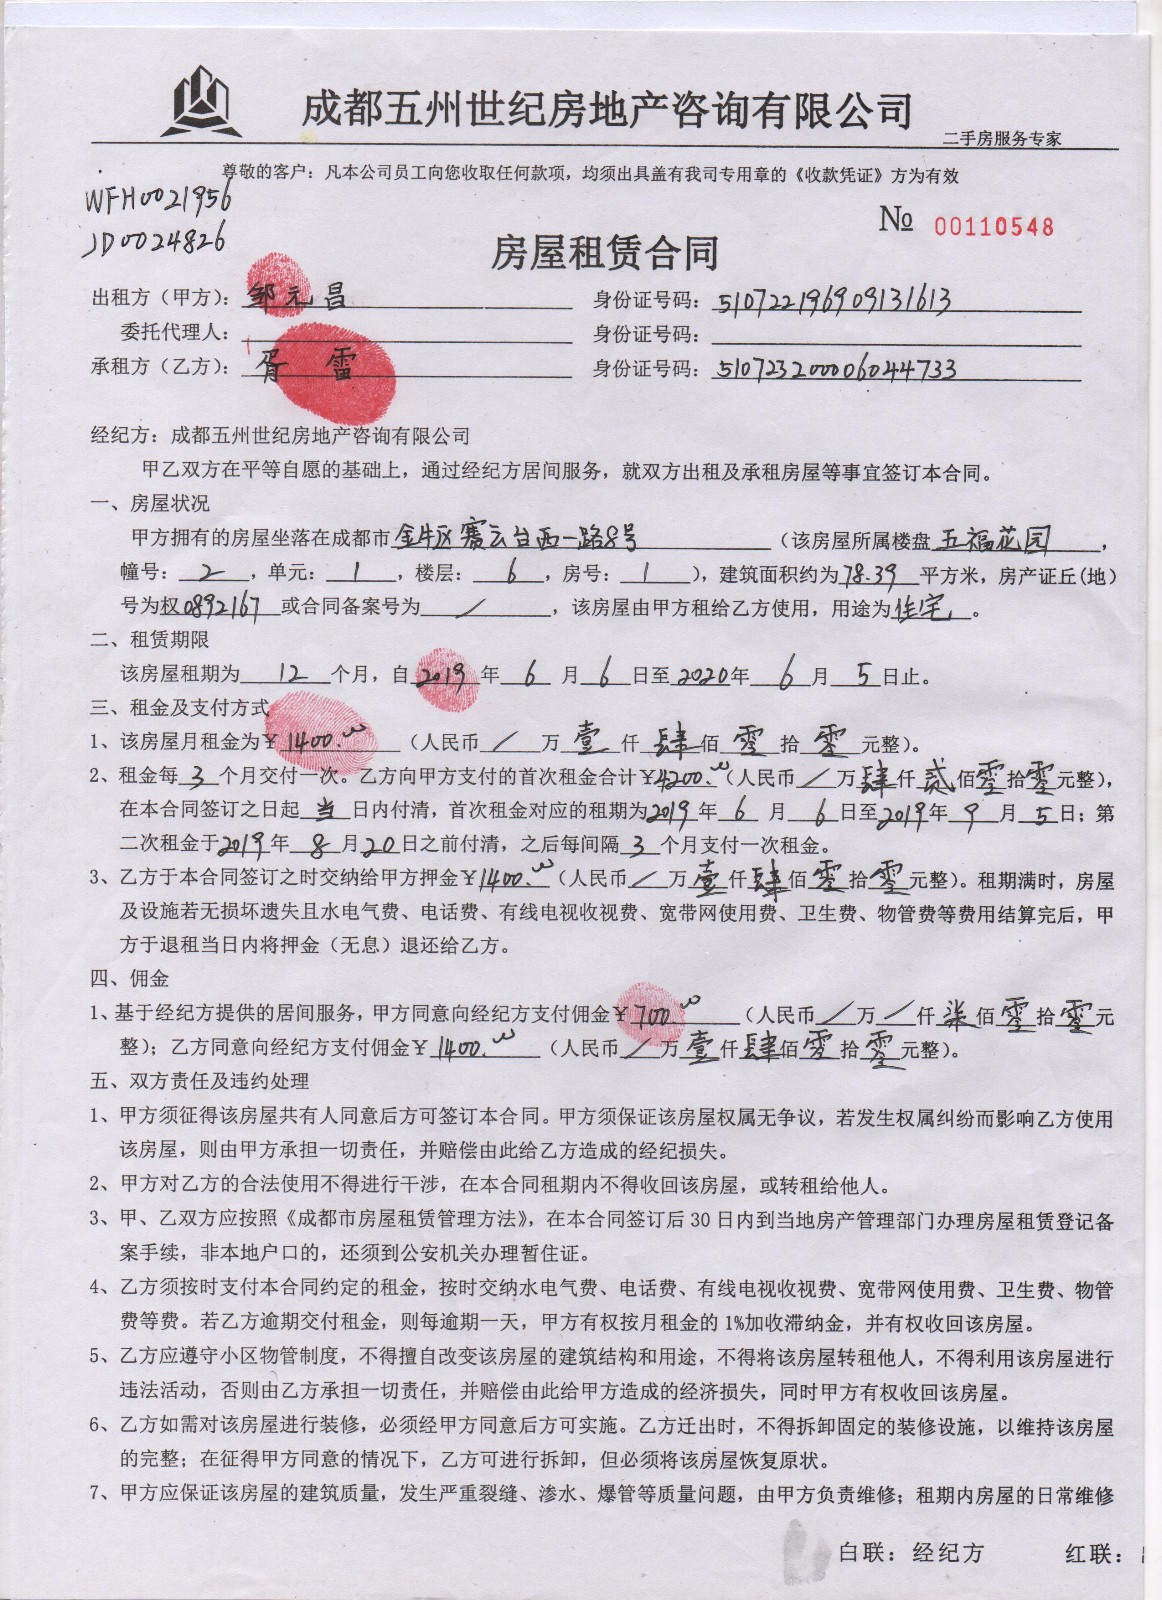 成都五州世纪房地产咨询有限公司
二手房服务专家
尊敬的客户：凡本公司员工向您收取任何款项，均须出具盖有我司专用章的《收款凭证》方为有效
WFH0021956
JD0024826
№ 00110548
房屋租赁合同
出租方（甲方）：邹元昌 身份证号码：510722196909131613
委托代理人： 身份证号码：
承租方（乙方）：胥雷 身份证号码：510723200006044733
经纪方：成都五州世纪房地产咨询有限公司
甲乙双方在平等自愿的基础上，通过经纪方居间服务，就双方出租及承租房屋等事宜签订本合同。
一、房屋状况
甲方拥有的房屋坐落在成都市金牛区赛云台西一路8号（该房屋所属楼盘五福花园，
幢号：2，单元：1，楼层：6，房号：1），建筑面积约为78.39平方米，房产证丘(地)
号为权0892167或合同备案号为/，该房屋由甲方租给乙方使用，用途为住宅。
二、租赁期限
该房屋租期为12个月，自2019年6月6日至2020年6月5日止。
三、租金及支付方式
1、该房屋月租金为￥1400.00（人民币/万壹仟肆佰零拾零元整）。
2、租金每3个月交付一次。乙方向甲方支付的首次租金合计￥4200.00（人民币/万肆仟贰佰零拾零元整），
在本合同签订之日起当日内付清，首次租金对应的租期为2019年6月6日至2019年9月5日；第
二次租金于2019年8月20日之前付清，之后每间隔3个月支付一次租金。
3、乙方于本合同签订之时交纳给甲方押金￥1400.00（人民币/万壹仟肆佰零拾零元整）。租期满时，房屋
及设施若无损坏遗失且水电气费、电话费、有线电视收视费、宽带网使用费、卫生费、物管费等费用结算完后，甲
方于退租当日内将押金（无息）退还给乙方。
四、佣金
1、基于经纪方提供的居间服务，甲方同意向经纪方支付佣金￥700.00（人民币/万/仟柒佰零拾零元
整）；乙方同意向经纪方支付佣金￥1400.00（人民币/万壹仟肆佰零拾零元整）。
五、双方责任及违约处理
1、甲方须征得该房屋共有人同意后方可签订本合同。甲方须保证该房屋权属无争议，若发生权属纠纷而影响乙方使用
该房屋，则由甲方承担一切责任，并赔偿由此给乙方造成的经纪损失。
2、甲方对乙方的合法使用不得进行干涉，在本合同租期内不得收回该房屋，或转租给他人。
3、甲、乙双方应按照《成都市房屋租赁管理方法》，在本合同签订后30日内到当地房产管理部门办理房屋租赁登记备
案手续，非本地户口的，还须到公安机关办理暂住证。
4、乙方须按时支付本合同约定的租金，按时交纳水电气费、电话费、有线电视收视费、宽带网使用费、卫生费、物管
费等费。若乙方逾期交付租金，则每逾期一天，甲方有权按月租金的1%加收滞纳金，并有权收回该房屋。
5、乙方应遵守小区物管制度，不得擅自改变该房屋的建筑结构和用途，不得将该房屋转租他人，不得利用该房屋进行
违法活动，否则由乙方承担一切责任，并赔偿由此给甲方造成的经济损失，同时甲方有权收回该房屋。
6、乙方如需对该房屋进行装修，必须经甲方同意后方可实施。乙方迁出时，不得拆卸固定的装修设施，以维持该房屋
的完整；在征得甲方同意的情况下，乙方可进行拆卸，但必须将该房屋恢复原状。
7、甲方应保证该房屋的建筑质量，发生严重裂缝、渗水、爆管等质量问题，由甲方负责维修；租期内房屋的日常维修
白联：经纪方 红联：